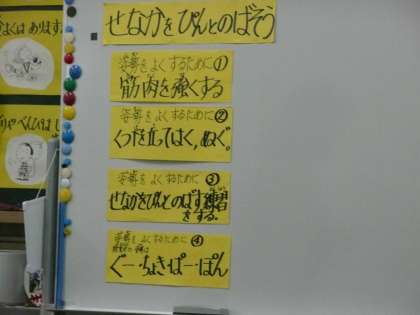 せなかをぴんとのばそう
よくはあります。
姿勢をよくするために①
筋肉を強くする
姿勢をよくするために②
くつを立ってはく,ぬぐ。
姿勢をよくするために③
せなかをぴんとのばす練習
をする。
姿勢をよくするために④
ぐー・ちょき・ぱー・ぽん